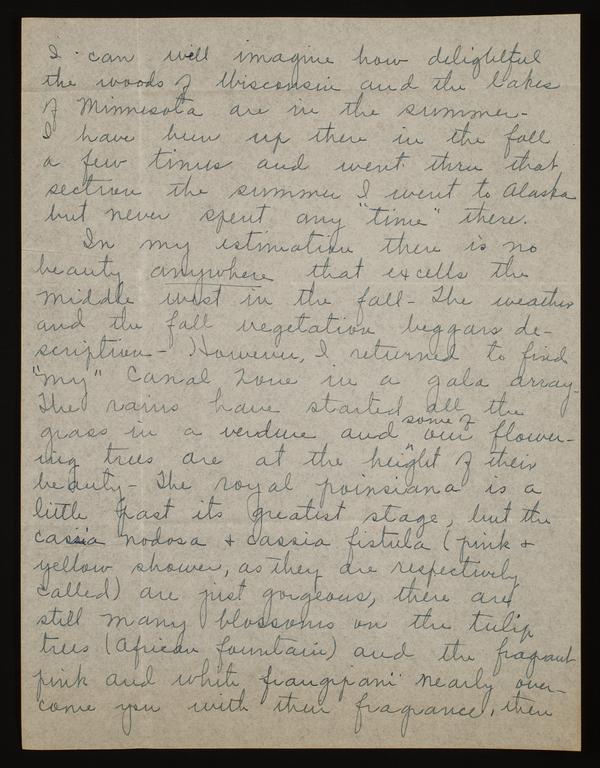 I can well imagine how delightful
the woods of Wisconsin and the lakes
of Minnesota are in the summer-
I have been up there in the fall
a few times and went thru that
section the summer I went to Alaska
but never spent any "time" there.
In my estimation there is no
beauty anywhere that excells the
middle west in the fall- The weather
and the fall vegetation beggars de-
scription- However, I returned to find
"my" Canal Zone in a gala array.
The rains have started all the
grass in a verdure and some of our flower-
ing trees are at the height of their
beauty- The royal poinsiana is a
little past its greatest stage, but the
cassia nodosa & cassia fistula (pink &
yellow shower, as they are respectively
called) are just gorgeous, there are
still many blossoms on the tulip
trees (African fountain) and the fragrant
pink and white frangipani nearly over-
come you with their fragrance, then